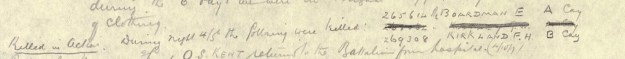 during the 6 days we were in
of clothing.
Killed in Action. During night 4/5th the following were killed: 265614 R BOARDMAN E A Coy
269308 KIRKLAND F.H B Coy
O.S. KENT returned to the Battalion from hospital